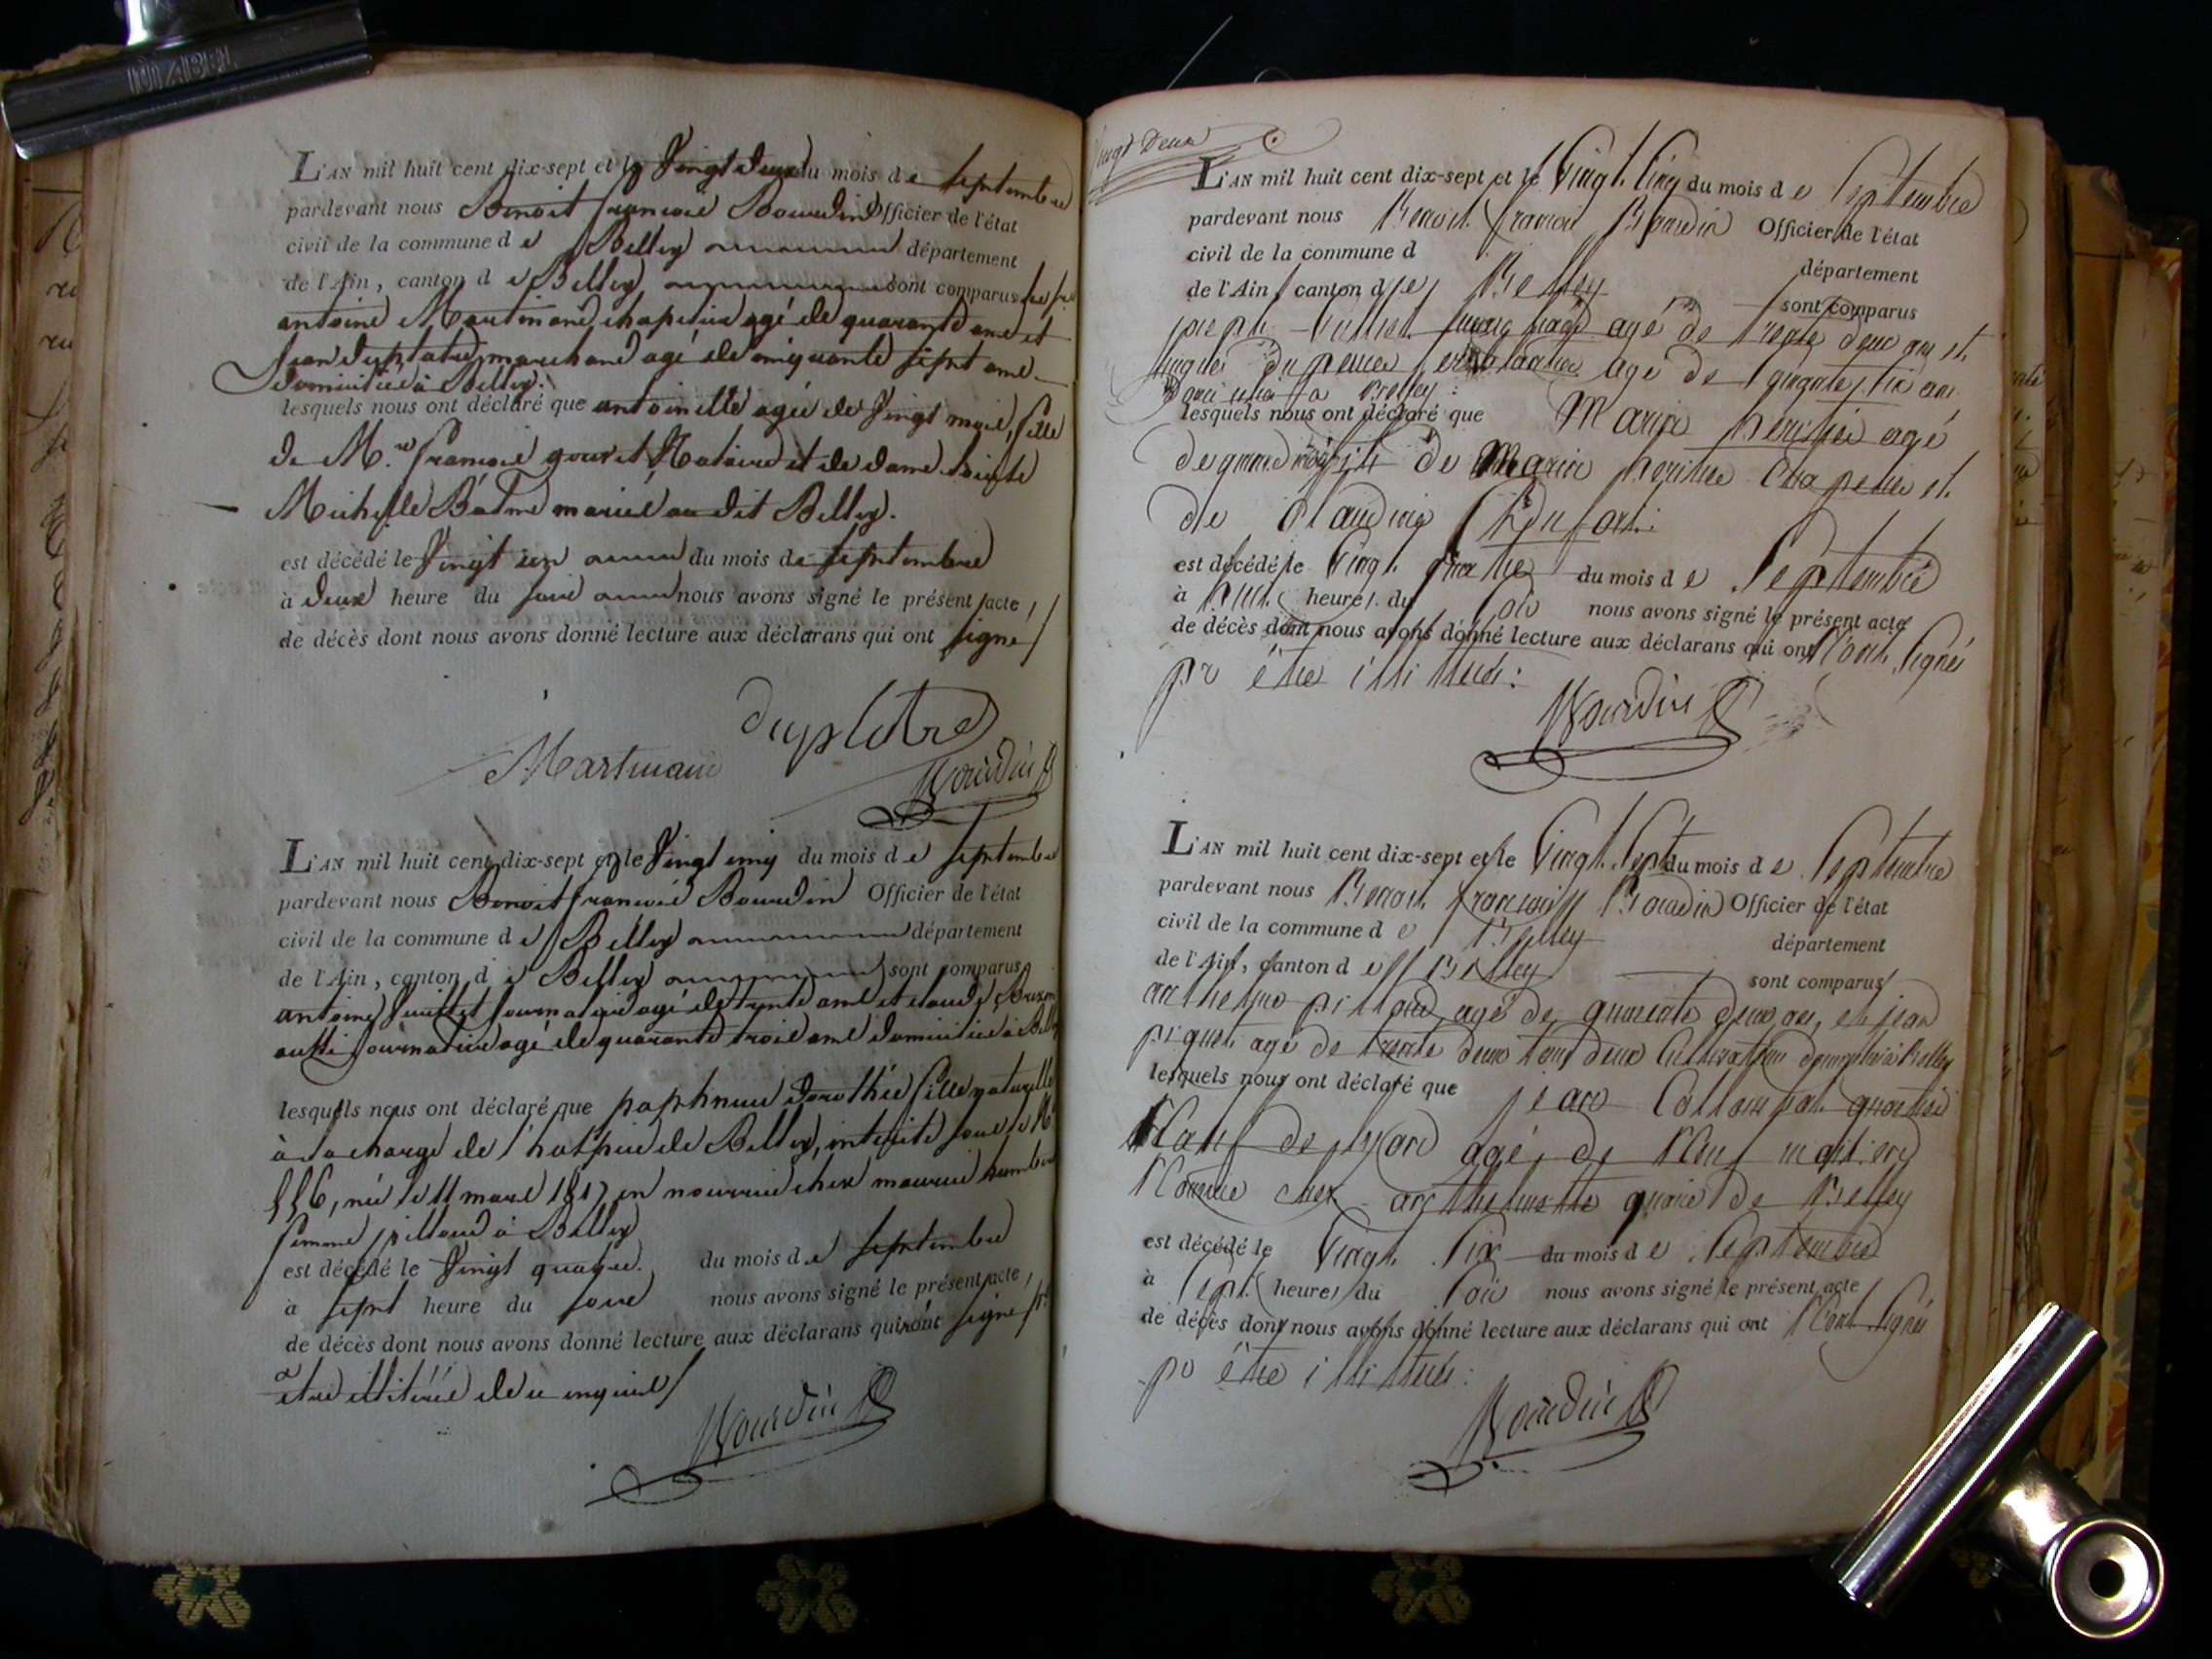 L'AN mil huit cent dix-sept et le Vingt deux du mois de septembre
pardevant nous Benoit francois Bourdin Officier de l'état
civil de la commune de Belley département
de l'Ain, canton de Belley sont comparus
antoine Martinand chapelier agé de quarante ans et
jean duplatre marchand agé de cinquante sept ans
domiciliés à Belley.
lesquels nous ont déclaré que antoinette agée de Vingt mois, fille
de M.re francois gouvet Notaire et de dame
Michelle Balme mariés au dit Belley.
est décédé le Vingt un du mois de septembre
à deux heure du soir nous avons signé le présent acte
de décès dont nous avons donné lecture aux déclarans qui ont signé
duplatre
Martinand
Bourdin
L'AN mil huit cent dix-sept et le Vingt cinq du mois de septembre
pardevant nous Benoit francois Bourdin Officier de l'état
civil de la commune de Belley département
de l'Ain, canton de Belley sont comparus
antoine journalier agé de trente ans et claude
aussi journalier agé de quarante trois ans domiciliés à Belley
lesquels nous ont déclaré que paphnuce dorothée fille naturelle
à la charge de l'hospice de Belley, inscrite sous le N.o
556, née le 11 mars 1817 en nourrice chez
femme pilloud à Belley
est décédé le Vingt quatre du mois de septembre
à sept heure du soir nous avons signé le présent acte
de décès dont nous avons donné lecture aux déclarans qui ont signé
être illitérés de ce enquis
Bourdin
Vingt Deux
L'AN mil huit cent dix-sept et le Vingt Cinq du mois de Septembre
pardevant nous Benoit francois Bourdin Officier de l'état
civil de la commune d
département
de l'Ain, canton de Belley
sont comparus
joseph agé de trente deux ans et
agé de Cinquante six ans
Domiciliés a Belley
lesquels nous ont déclaré que Marin agé
de de Marin Chapelier et
de Claudine
est décédé le Vingt quatre du mois de Septembre
à huit heures du Soir nous avons signé le présent acte
de décès dont nous avons donné lecture aux déclarans qui ont N'ont Signés
pr être illitterés:
Bourdin
L'AN mil huit cent dix-sept et le Vingt Sept du mois de Septembre
pardevant nous Benoit francois Bourdin Officier de l'état
civil de la commune de Belley
département
de l'Ain, canton de Belley
sont comparus
anthelme pilloud agé de quarante deux ans, et jean
piquet agé de trente deux tous deux Cultivateurs domiciliés Belley
lesquels nous ont déclaré que jean
de agé de Neuf
chez anthelmette de Belley
est décédé le Vingt Six du mois de Septembre
à Sept heures du Soir nous avons signé le présent acte
de décès dont nous avons donné lecture aux déclarans qui ont N'ont Signés
pr être illitterés:
Bourdin